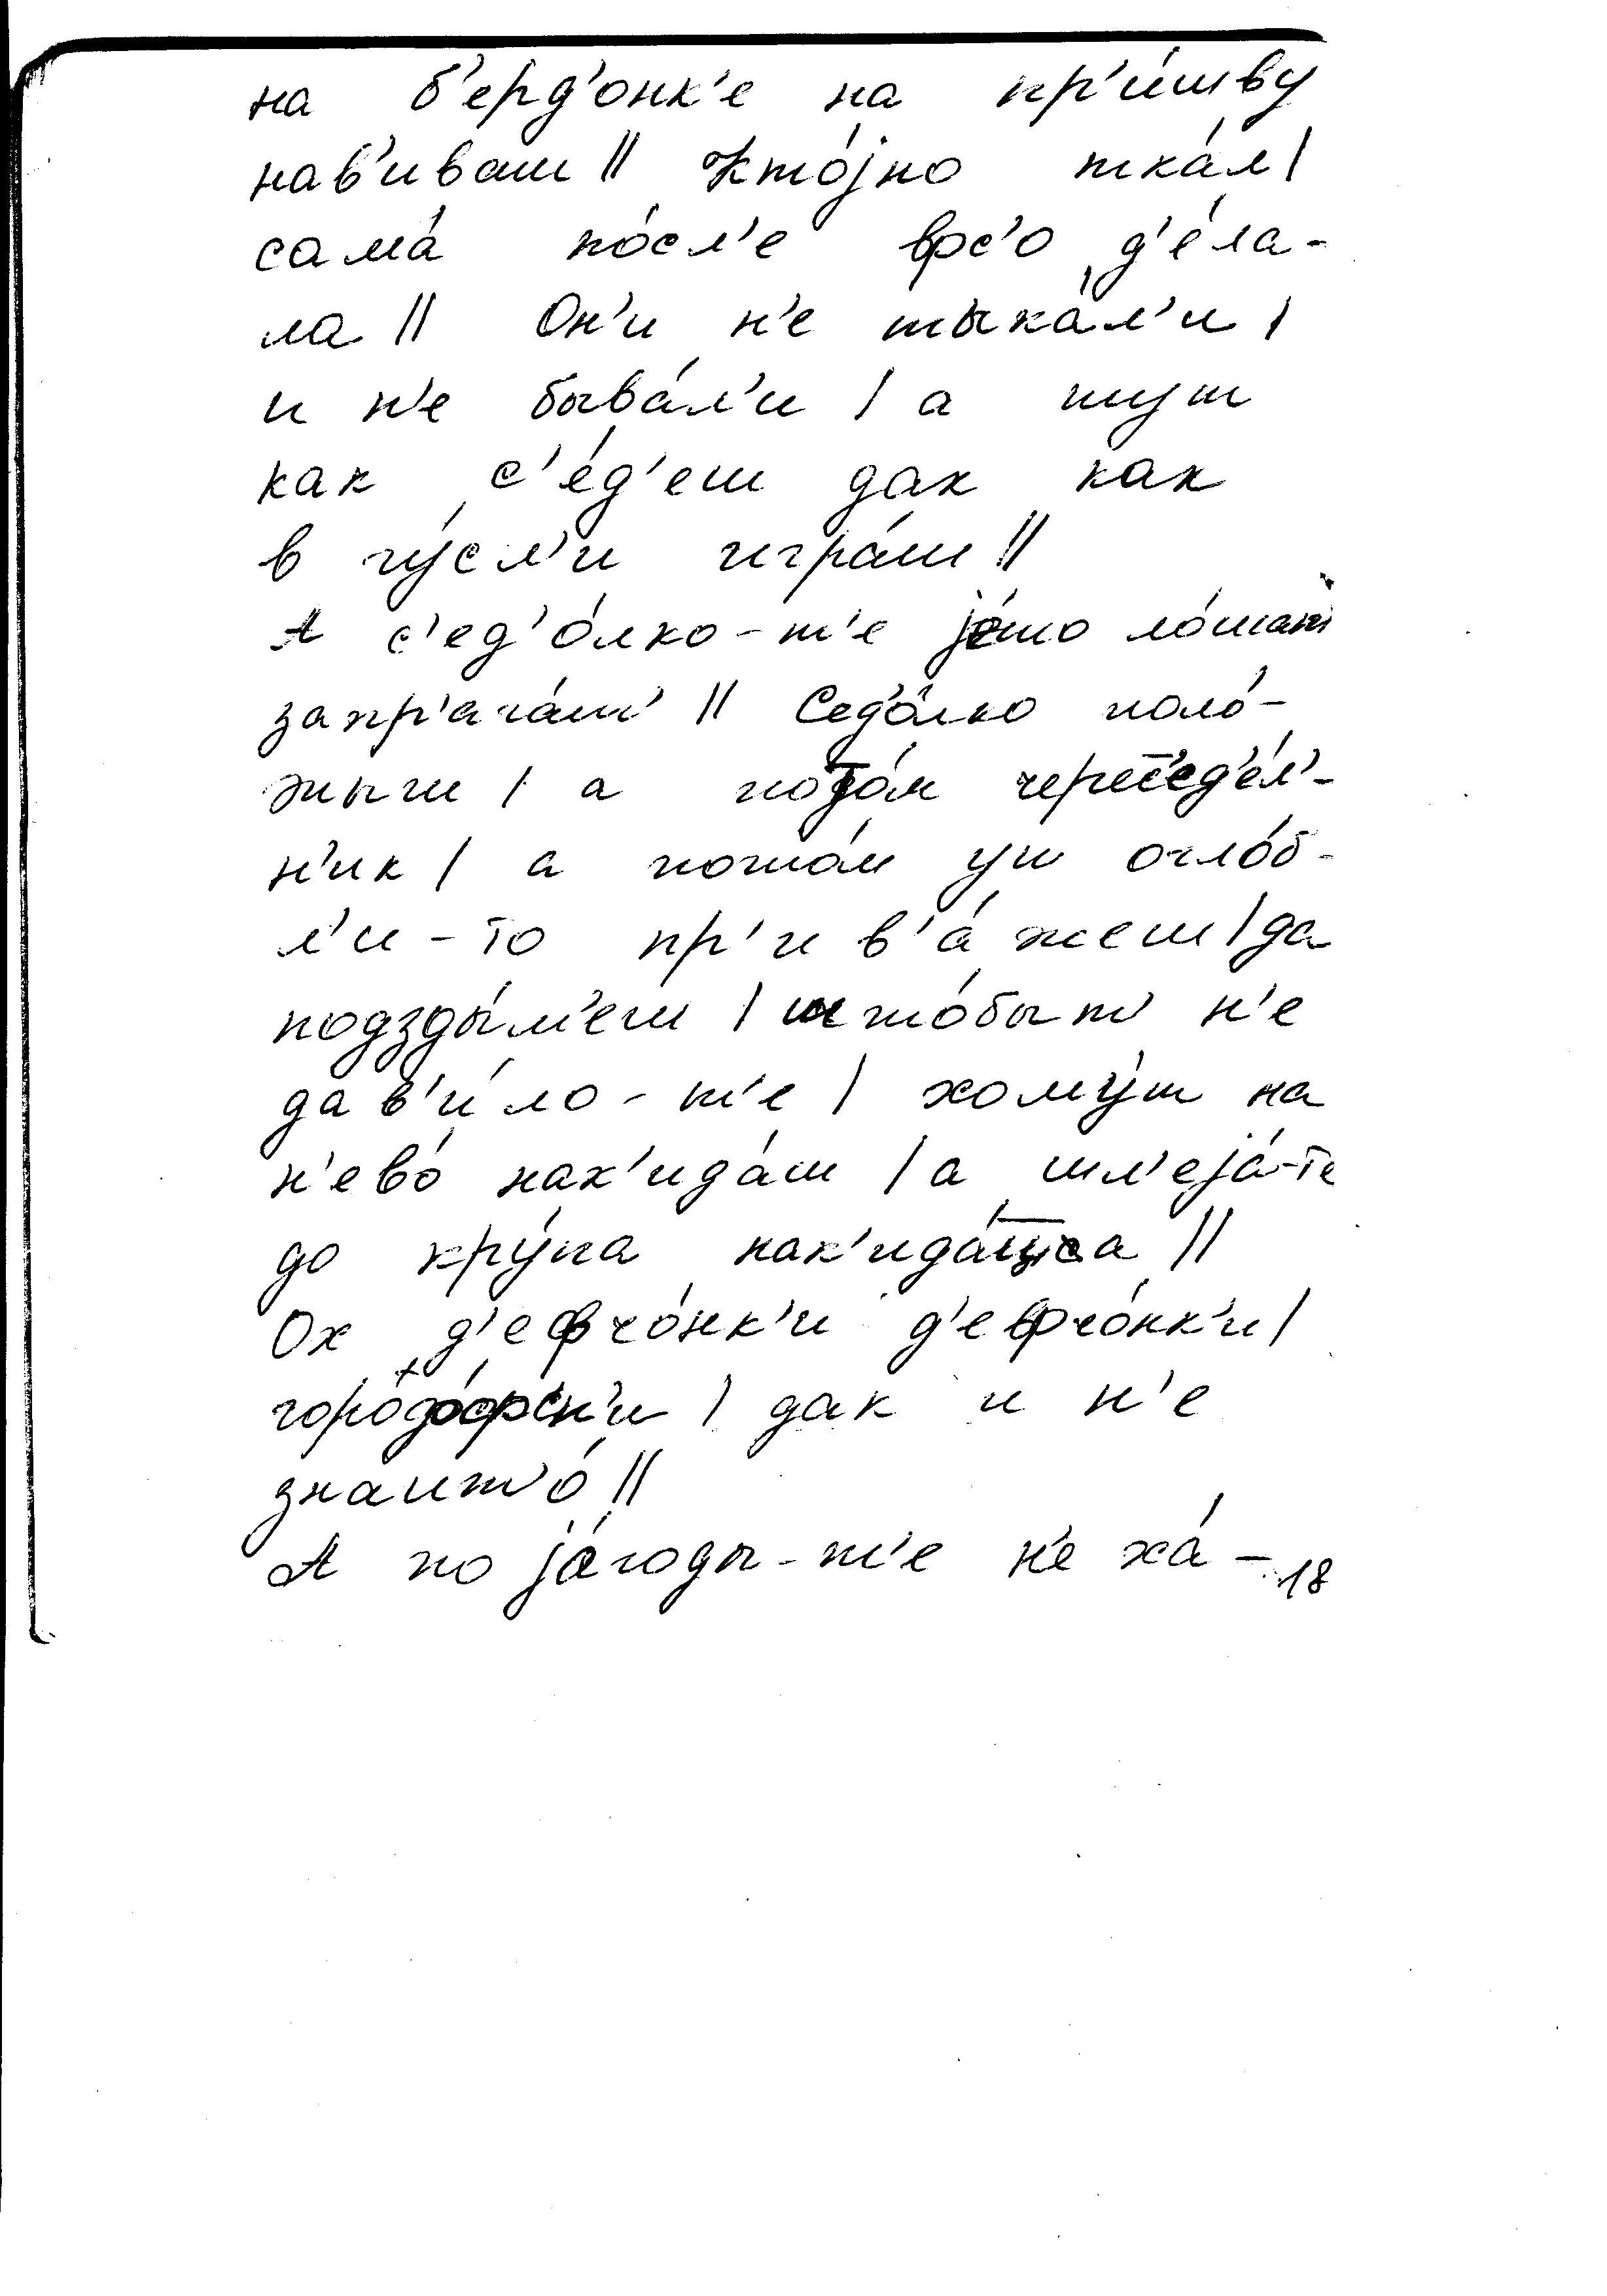 на б'ерд'онк'е на пр'и́шву
нав'иваш || кто́јно тка́л |
сама́ по́сл'е фс'о д'е́ла-
ла || Он'и н'е тыка́л'и |
и н'е быва́л'и | а тут
как с'е́д'еш дак как
в гу́сл'и игра́ш ||
А с'ед'о́лко-т'е је́то ло́шат'
запр'ага́т' || Сед'о́лко поло́-
жыш | а пото́м черес'ед'е́л'-
н'ик | а пото́м уш огло́б-
л'и-то пр'ив'а́жеш | да
подзды́м'еш | што́быт' н'е
дав'и́ло-т'е | хому́т на
н'ево́ нак'ида́ш | а шл'еја́-те
до кру́па нак'ида́ца ||
Ох д'ефчо́нк'и д'ефчо́нк'и |
дак и н'е
знаит'о́ ||
А по ја́годы-т'е н'е ха́-
18